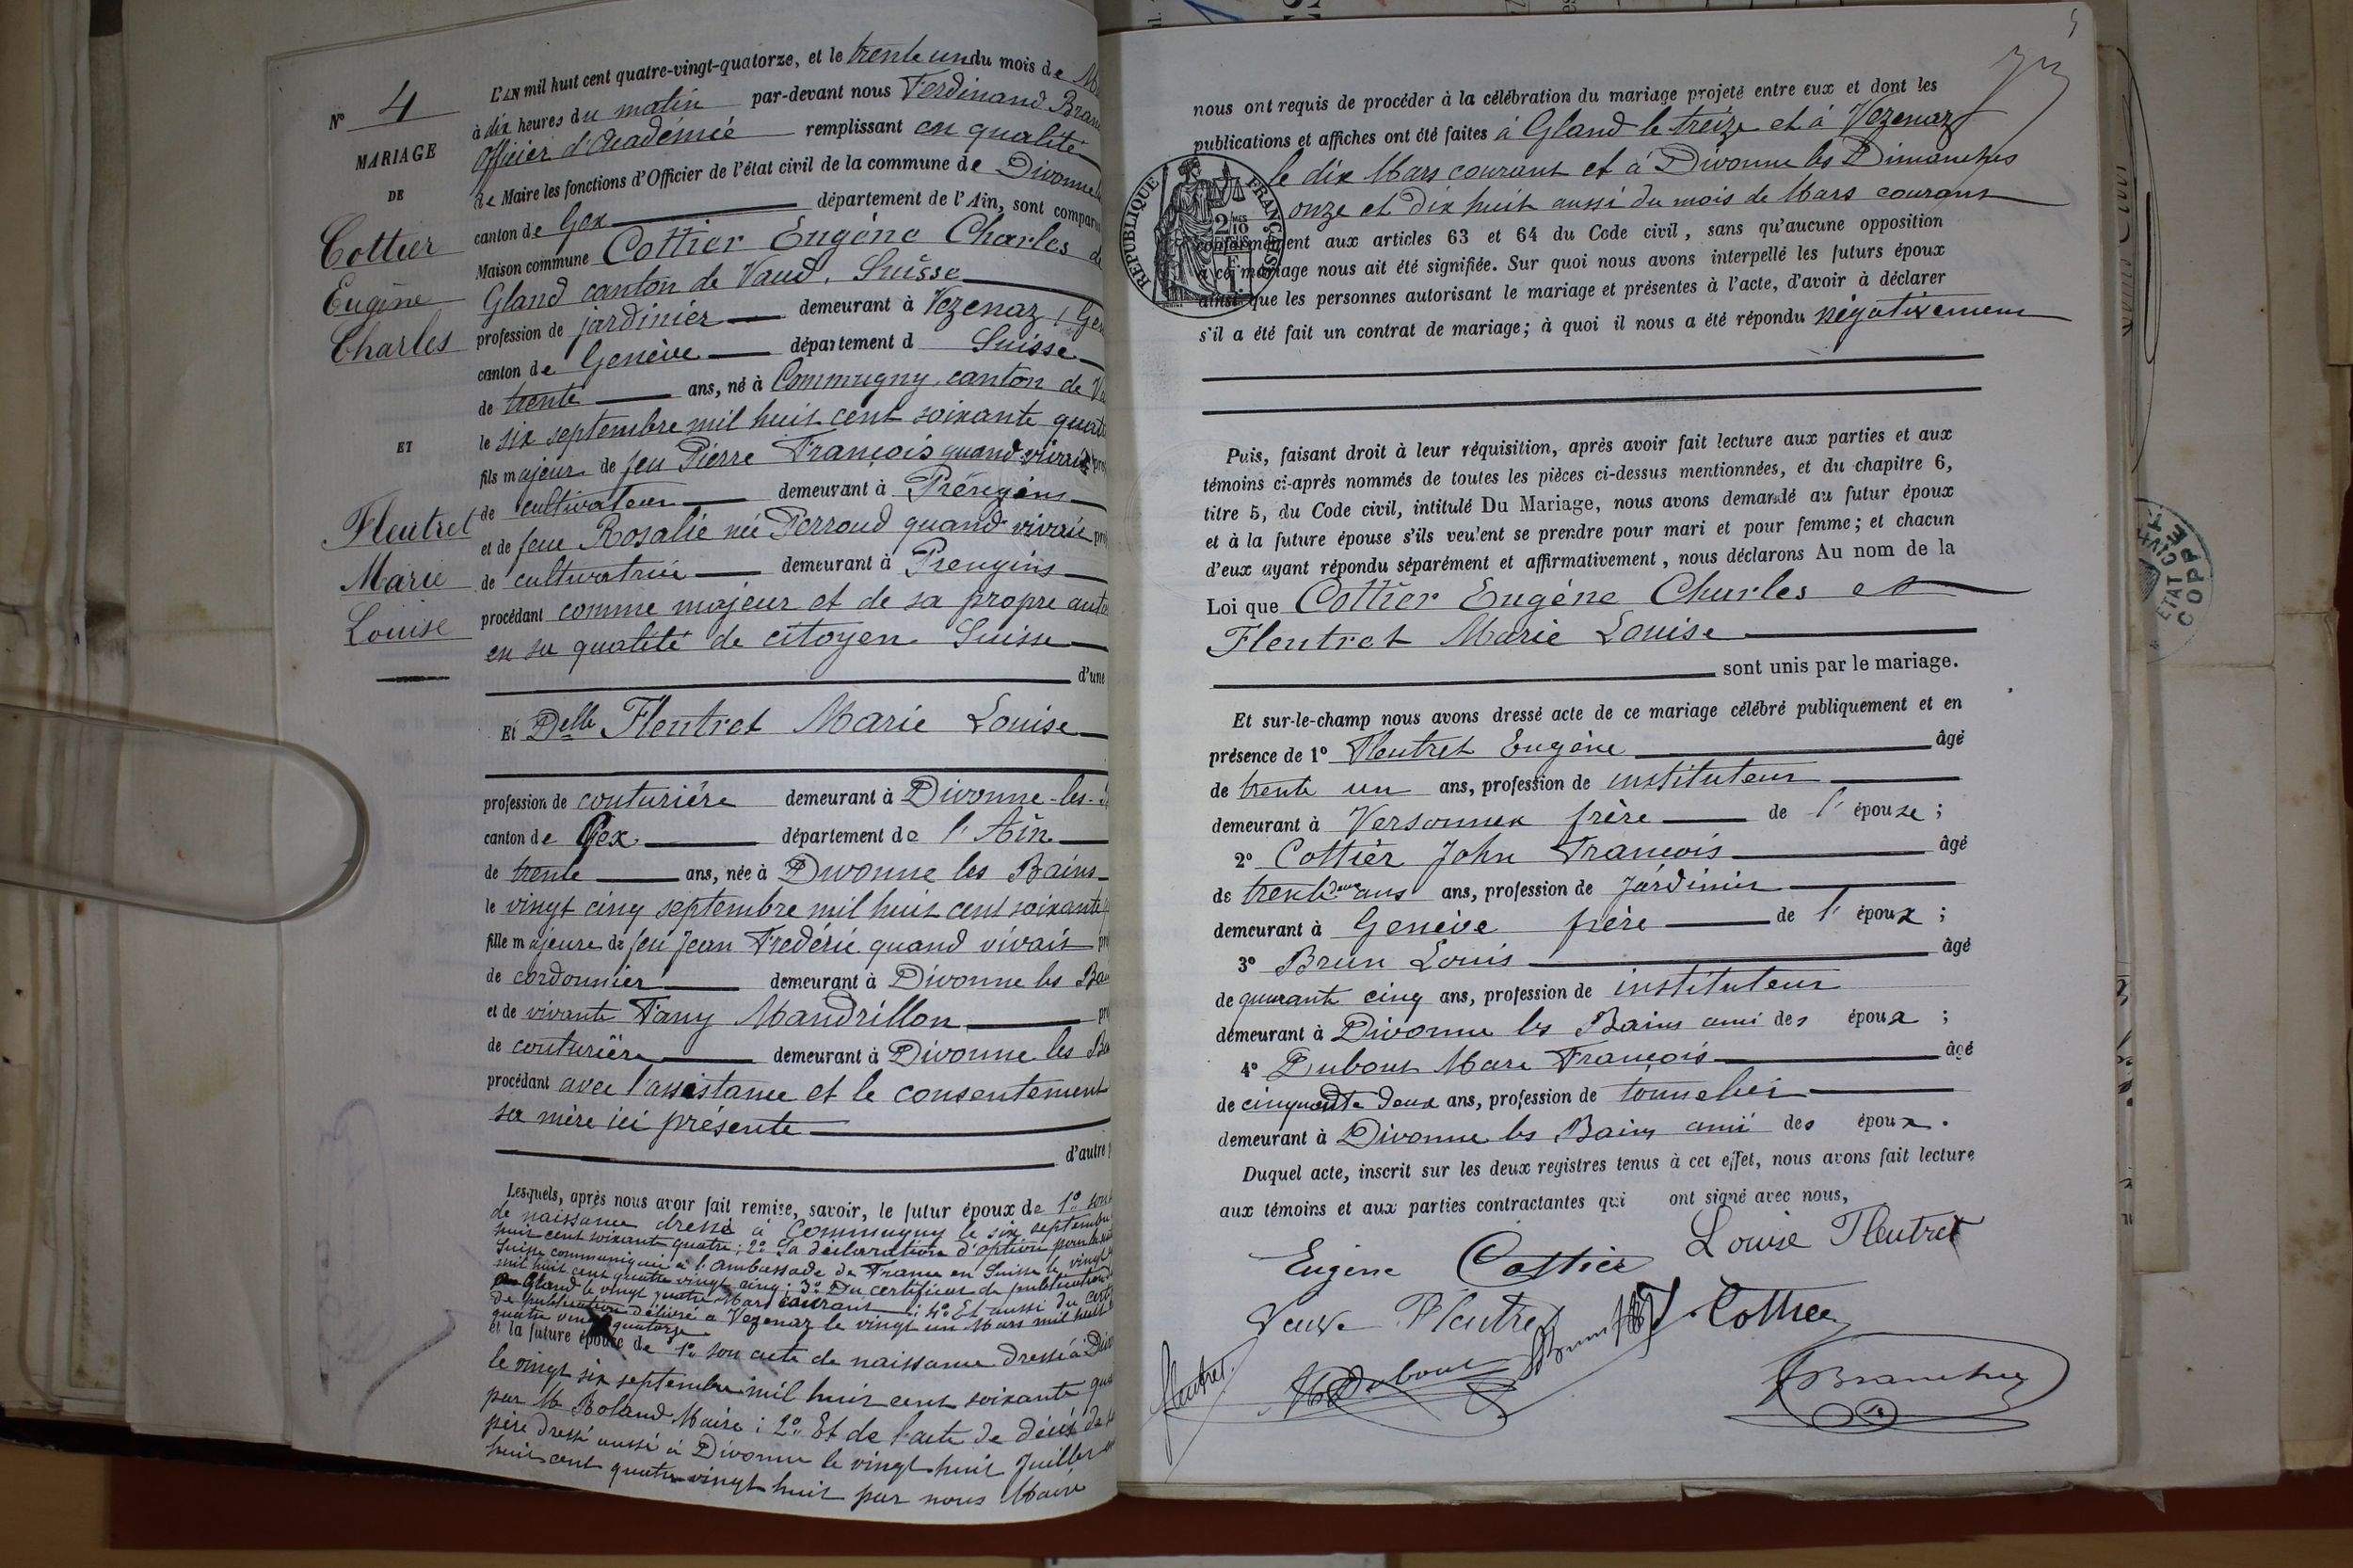 N° 4
MARIAGE
DE
Cottier
Eugène
Charles
ET
Fleutret
Marie
Louise
L'AN mil huit cent quatre-vingt-quatorze, et le trente un du mois de
à dix heures du matin par-devant nous Ferdinand
Officier d'Académie remplissant en qualité
de Maire les fonctions d'Officier de l'état civil de la commune de Divonne
canton de Gex département de l'Ain, sont comparus
Maison commune Cottier Eugène Charles de
Gland canton de Vaud, Suisse
profession de jardinier demeurant à Vezenaz
canton de Genève département d Suisse
de trente ans, né à Commugny canton de
le six septembre mil huit cent soixante
fils majeur de feu Pierre François quand vivait
de cultivateur demeurant à
et de feue Rosalie née Perroud quand vivait
de cultivatrice demeurant à Prengins
procédant comme majeur et de sa propre
en sa qualité de citoyen Suisse
d'une
Et Delle Fleutret Marie Louise
profession de couturière demeurant à Divonne-les-
canton de Gex département de l'Ain
de trente ans, née à Divonne les Bains
le vingt cinq septembre mil huit cent soixante
fille majeure de feu Jean Fredéric quand vivait
de cordonnier demeurant à Divonne les
et de vivante Fany Mandrillon
de couturière demeurant à Divonne les
procédant avec l'assistance et le consentement
sa mère ici présente
d'autre
Lesquels, après nous avoir fait remise, savoir, le futur époux de 1° son
de naissance dressé à Commugny le six septembre
huit cent soixante quatre; 2° Sa déclaration d'option pour la
Suisse communiquée à l'ambassade de France en Suisse le vingt
mil huit cent quatre vingt cinq; 3° Du certificat de publication
Gland le vingt quatre Mars courant; 4° Et aussi du
de publication délivré à Vezenaz le vingt un Mars mil huit
quatre vingt quatorze
et la future épouse de 1° son acte de naissance dressé à
le vingt six septembre mil huit cent soixante
par M Roland Maire; 2° Et de l'acte de décès de
père dressé aussi à Divonne le vingt huit Juillet
huit cent quatre-vingt huit par nous Maire
nous ont requis de procéder à la célébration du mariage projeté entre eux et dont les
publications et affiches ont été faites à Gland le treize et à Vezenaz
le dix Mars courant et à Divonne les Dimanches
onze et dix huit aussi du mois de Mars courant
conformément aux articles 63 et 64 du Code civil, sans qu'aucune opposition
à ce mariage nous ait été signifiée. Sur quoi nous avons interpellé les futurs époux
ainsi que les personnes autorisant le mariage et présentes à l'acte, d'avoir à déclarer
s'il a été fait un contrat de mariage; à quoi il nous a été répondu négativement
RÉPUBLIQUE FRANÇAISE
Puis, faisant droit à leur réquisition, après avoir fait lecture aux parties et aux
témoins ci-après nommés de toutes les pièces ci-dessus mentionnées, et du chapitre 6,
titre 5, du Code civil, intitulé Du Mariage, nous avons demandé au futur époux
et à la future épouse s'ils veulent se prendre pour mari et pour femme; et chacun
d'eux ayant répondu séparément et affirmativement, nous déclarons Au nom de la
Loi que Cottier Eugène Charles et
Fleutret Marie Louise
sont unis par le mariage.
Et sur-le-champ nous avons dressé acte de ce mariage célébré publiquement et en
présence de 1° Fleutret Eugène âgé
de trente un ans, profession de instituteur
demeurant à Versonnex frère de l'épouse;
2° Cottier John François âgé
de trente deux ans ans, profession de Jardinier
demeurant à Genève frère de l'époux;
3° Brun Louis âgé
de quarante cinq ans, profession de instituteur
demeurant à Divonne les Bains ami des époux;
4° Dubout Marc François âgé
de cinquante deux ans, profession de tonnelier
demeurant à Divonne les Bains ami des époux.
Duquel acte, inscrit sur les deux registres tenus à cet effet, nous avons fait lecture
aux témoins et aux parties contractantes qui ont signé avec nous,
Eugène Cottier Louise Fleutret
Veuve Fleutret J. Cottier
Fleutret
ETAT CIVIL
COPPE